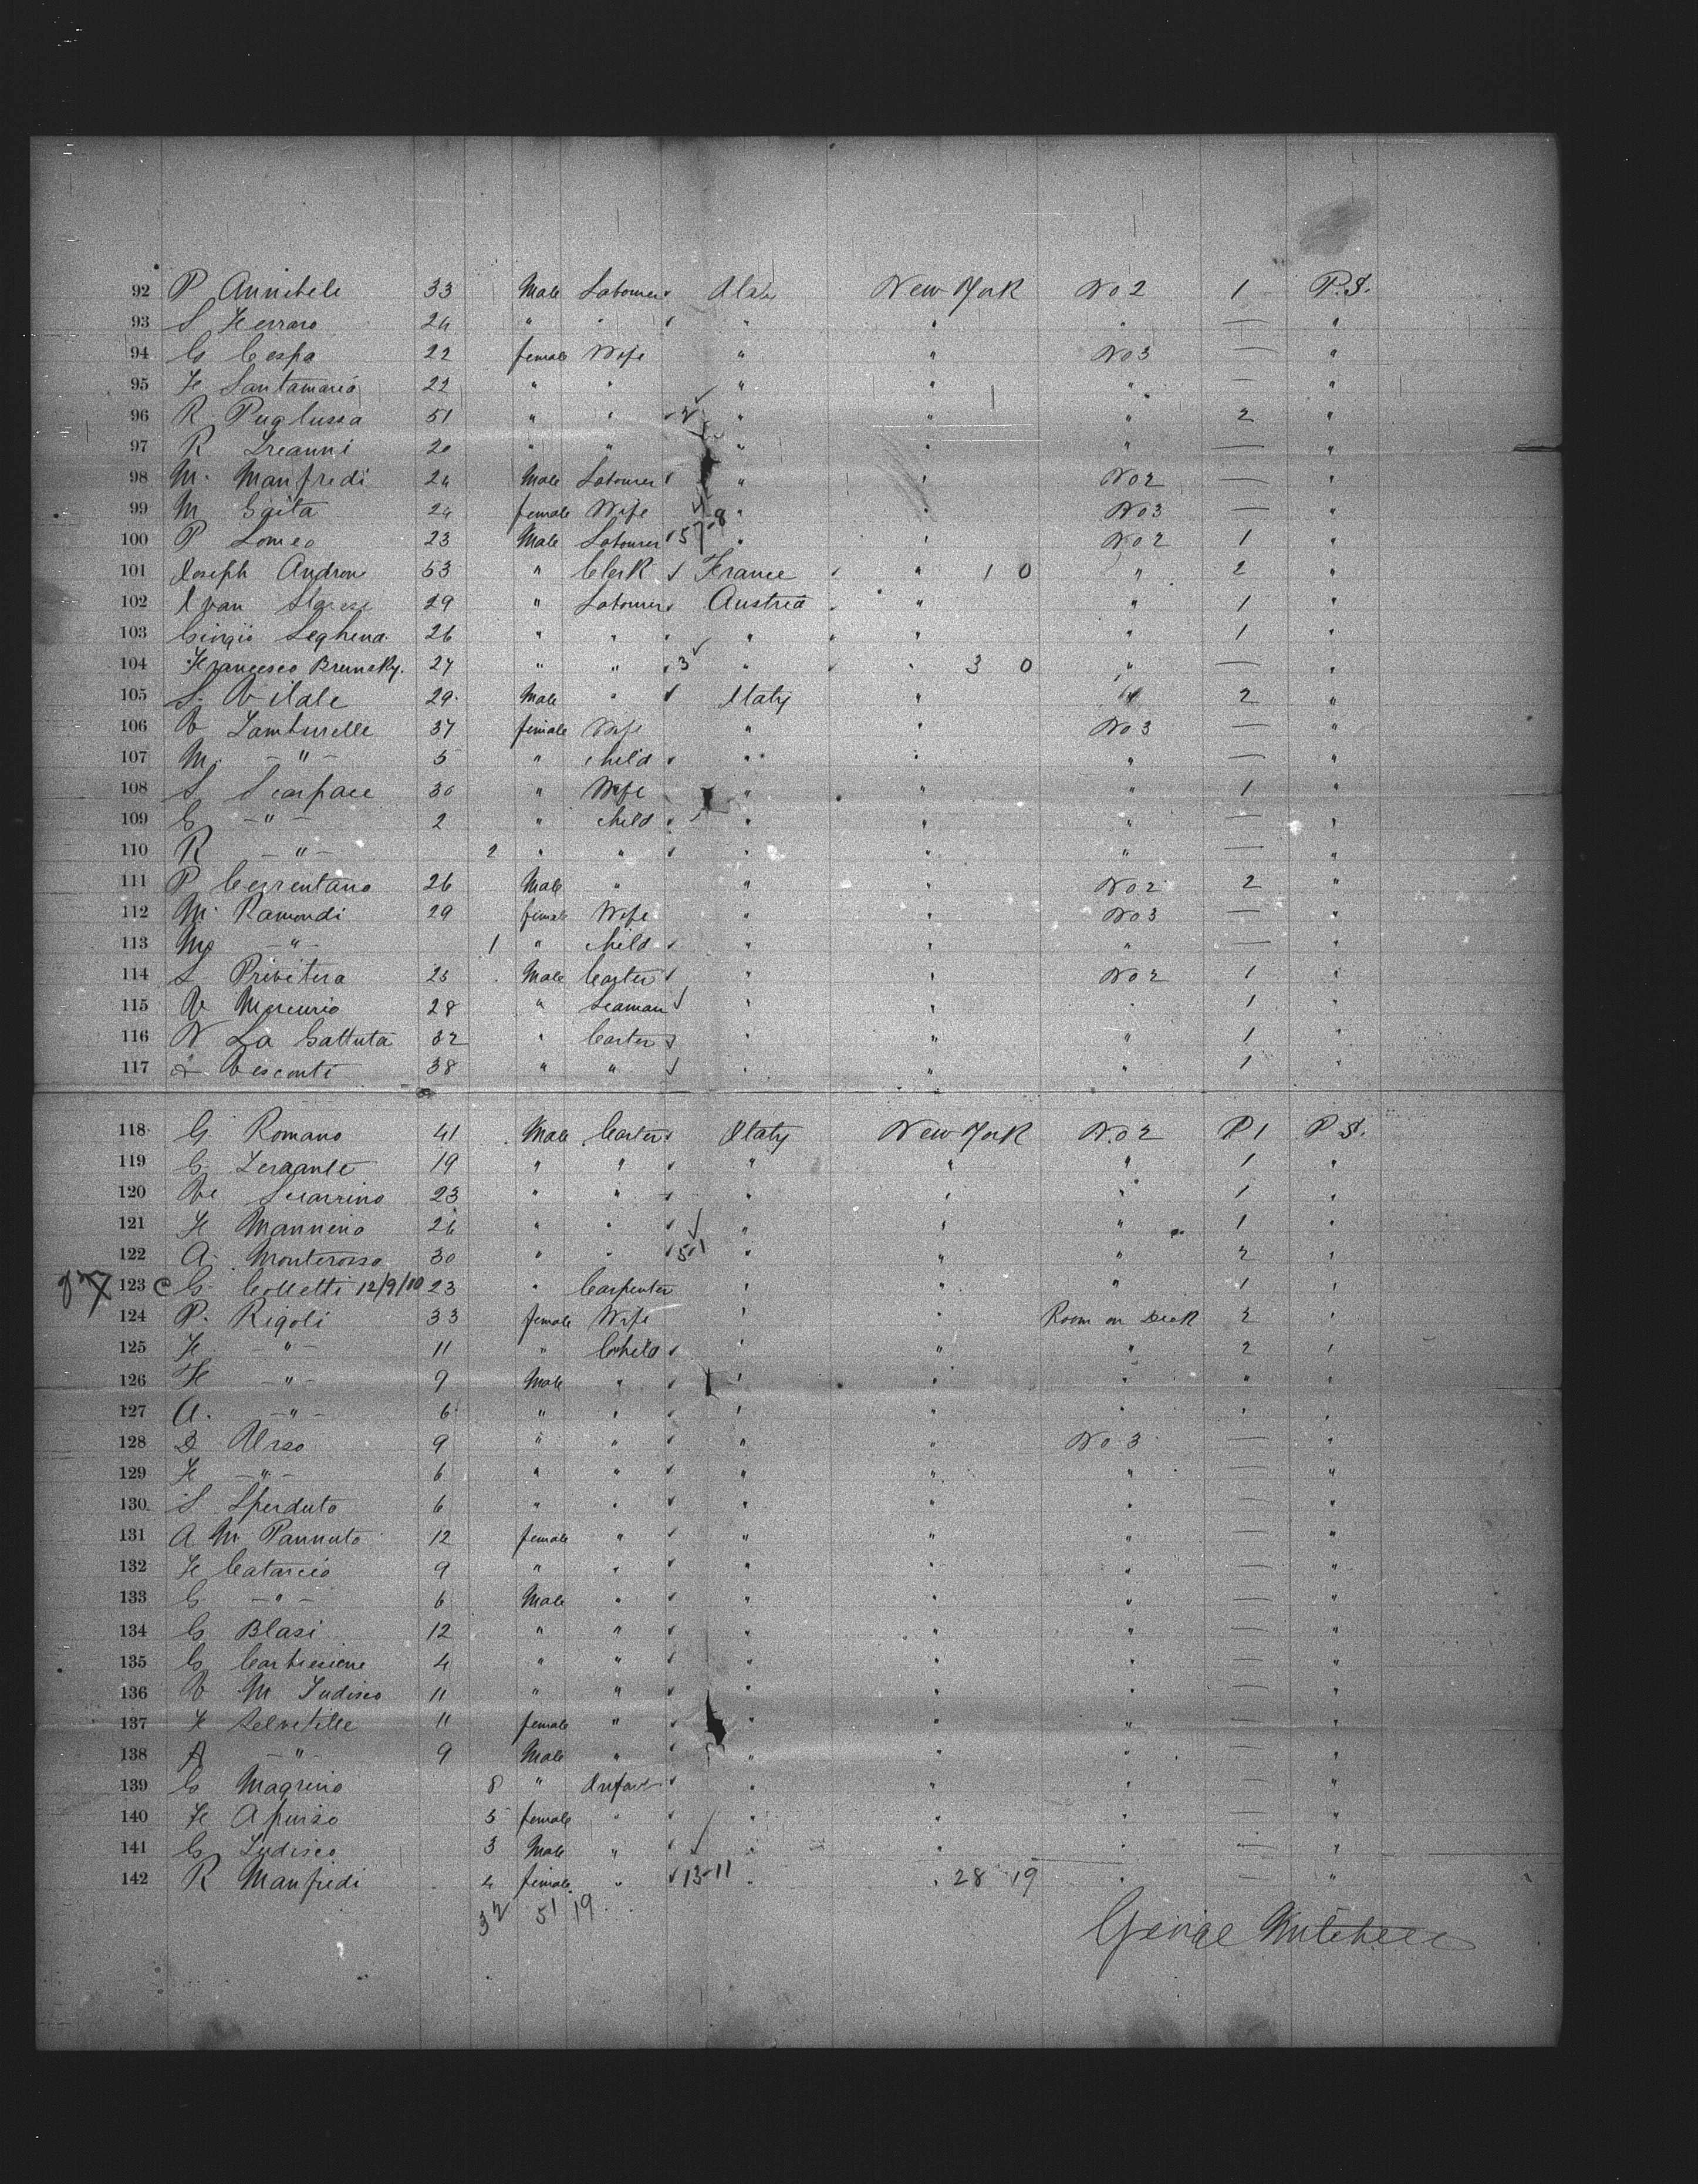 92 P Annibele 33 Male Labourer Italy New York No 2 1 P.S.
93 S Ferraro 24 " " " " " — "
94 G Cespa 22 female Wife " " No 3 — "
95 F Santamaria 22 " " " " " — "
96 R Puglussa 51 " " " " " 2 "
97 R Ireanni 20 " " " " " — "
98 M. Manfredi 24 Male Labourer " " No 2 — "
99 M Gaita 24 female Wife " " No 3 — "
100 P Lomeo 23 Male Labourer 57-8 " " No 2 1 "
101 Joseph Andron 53 " Clerk France " 1 0 " 2 "
102 Ivan 29 " Labourer Austria " " 1 "
103 Giorgio Seghena 26 " " " " " 1 "
104 Francesco Brunsky. 27 " " 3 " " 3 0 " — "
105 S. Vitale 29 Male " Italy " " 2 "
106 V Lamburelle 37 female Wife " " No 3 — "
107 M. — " — 5 " child " " " — "
108 S Scarpace 30 " Wife " " " 1 "
109 G — " — 2 " child " " " — "
110 R — " — 2 " " " " " — "
111 P Cerrentano 26 Male " " " No 2 2 "
112 M. Ramondi 29 female Wife " " No 3 — "
113 Mg — " — 1 " child " " " — "
114 S Privitera 25 Male Carter " " No 2 1 "
115 V Mercurio 28 " Seaman " " " 1 "
116 N La Gattuta 32 " Carter " " " 1 "
117 Visconti 38 " " " " " 1 "
118 G Romano 41 Male Carter Italy New York No 2 P 1 P.S.
119 G Zeraante 19 " " " " " 1 "
120 Scarrino 23 " " " " " 1 "
121 F Mannino 26 " " " " " 1 "
122 A. Monterosso 30 " " 5-1 " " " 2 "
X 123 C G Colletti 12/9/10 23 " Carpenter " " " 1 "
124 P. Rigoli 33 female Wife " " Room on Deck 2 "
125 F — " — 11 " Child " " " 2 "
126 F — " — 9 Male " " " " " "
127 A. — " — 6 " " " " " " "
128 D Urso 9 " " " " No 3 — "
129 F — " — 6 " " " " " — "
130 S Sperduto 6 " " " " " — "
131 A M Pannuto 12 female " " " " — "
132 F Catarcio 9 " " " " " — "
133 G — " — 6 Male " " " " — "
134 G Blasi 12 " " " " " — "
135 G 4 " " " " " — "
136 V M Iudisco 11 " " " " " — "
137 F Selvitelle 11 female " " " " — "
138 A — " — 9 Male " " " " — "
139 G Magrino 8 " Infant " " " — "
140 F Apuzzo 5 female " " " " — "
141 G Iudisco 3 Male " " " " — "
142 R Manfredi 4 female " 13-11 " " 28 19 " — "
32 51 19
George Mitchell